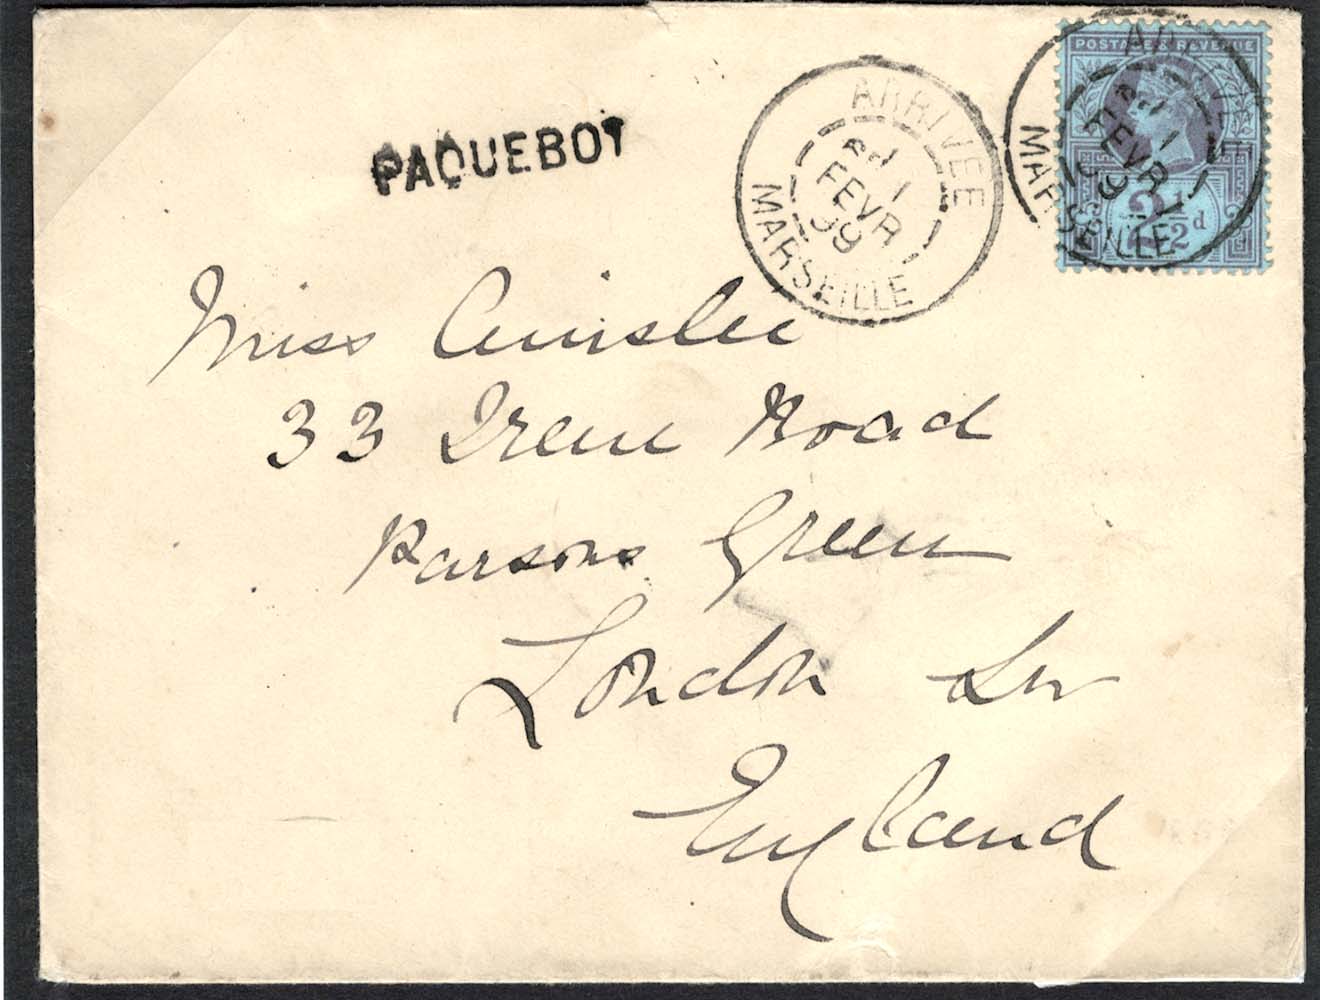 PAQUEBOT
ARRIVEE
1
FEVR
99
MARSEILLE
POSTAGE & REVENUE
FEVR
99
MARSEILLE
2½d
Miss Ainslie
33 Irene Road
Parsons Green
London SW
England